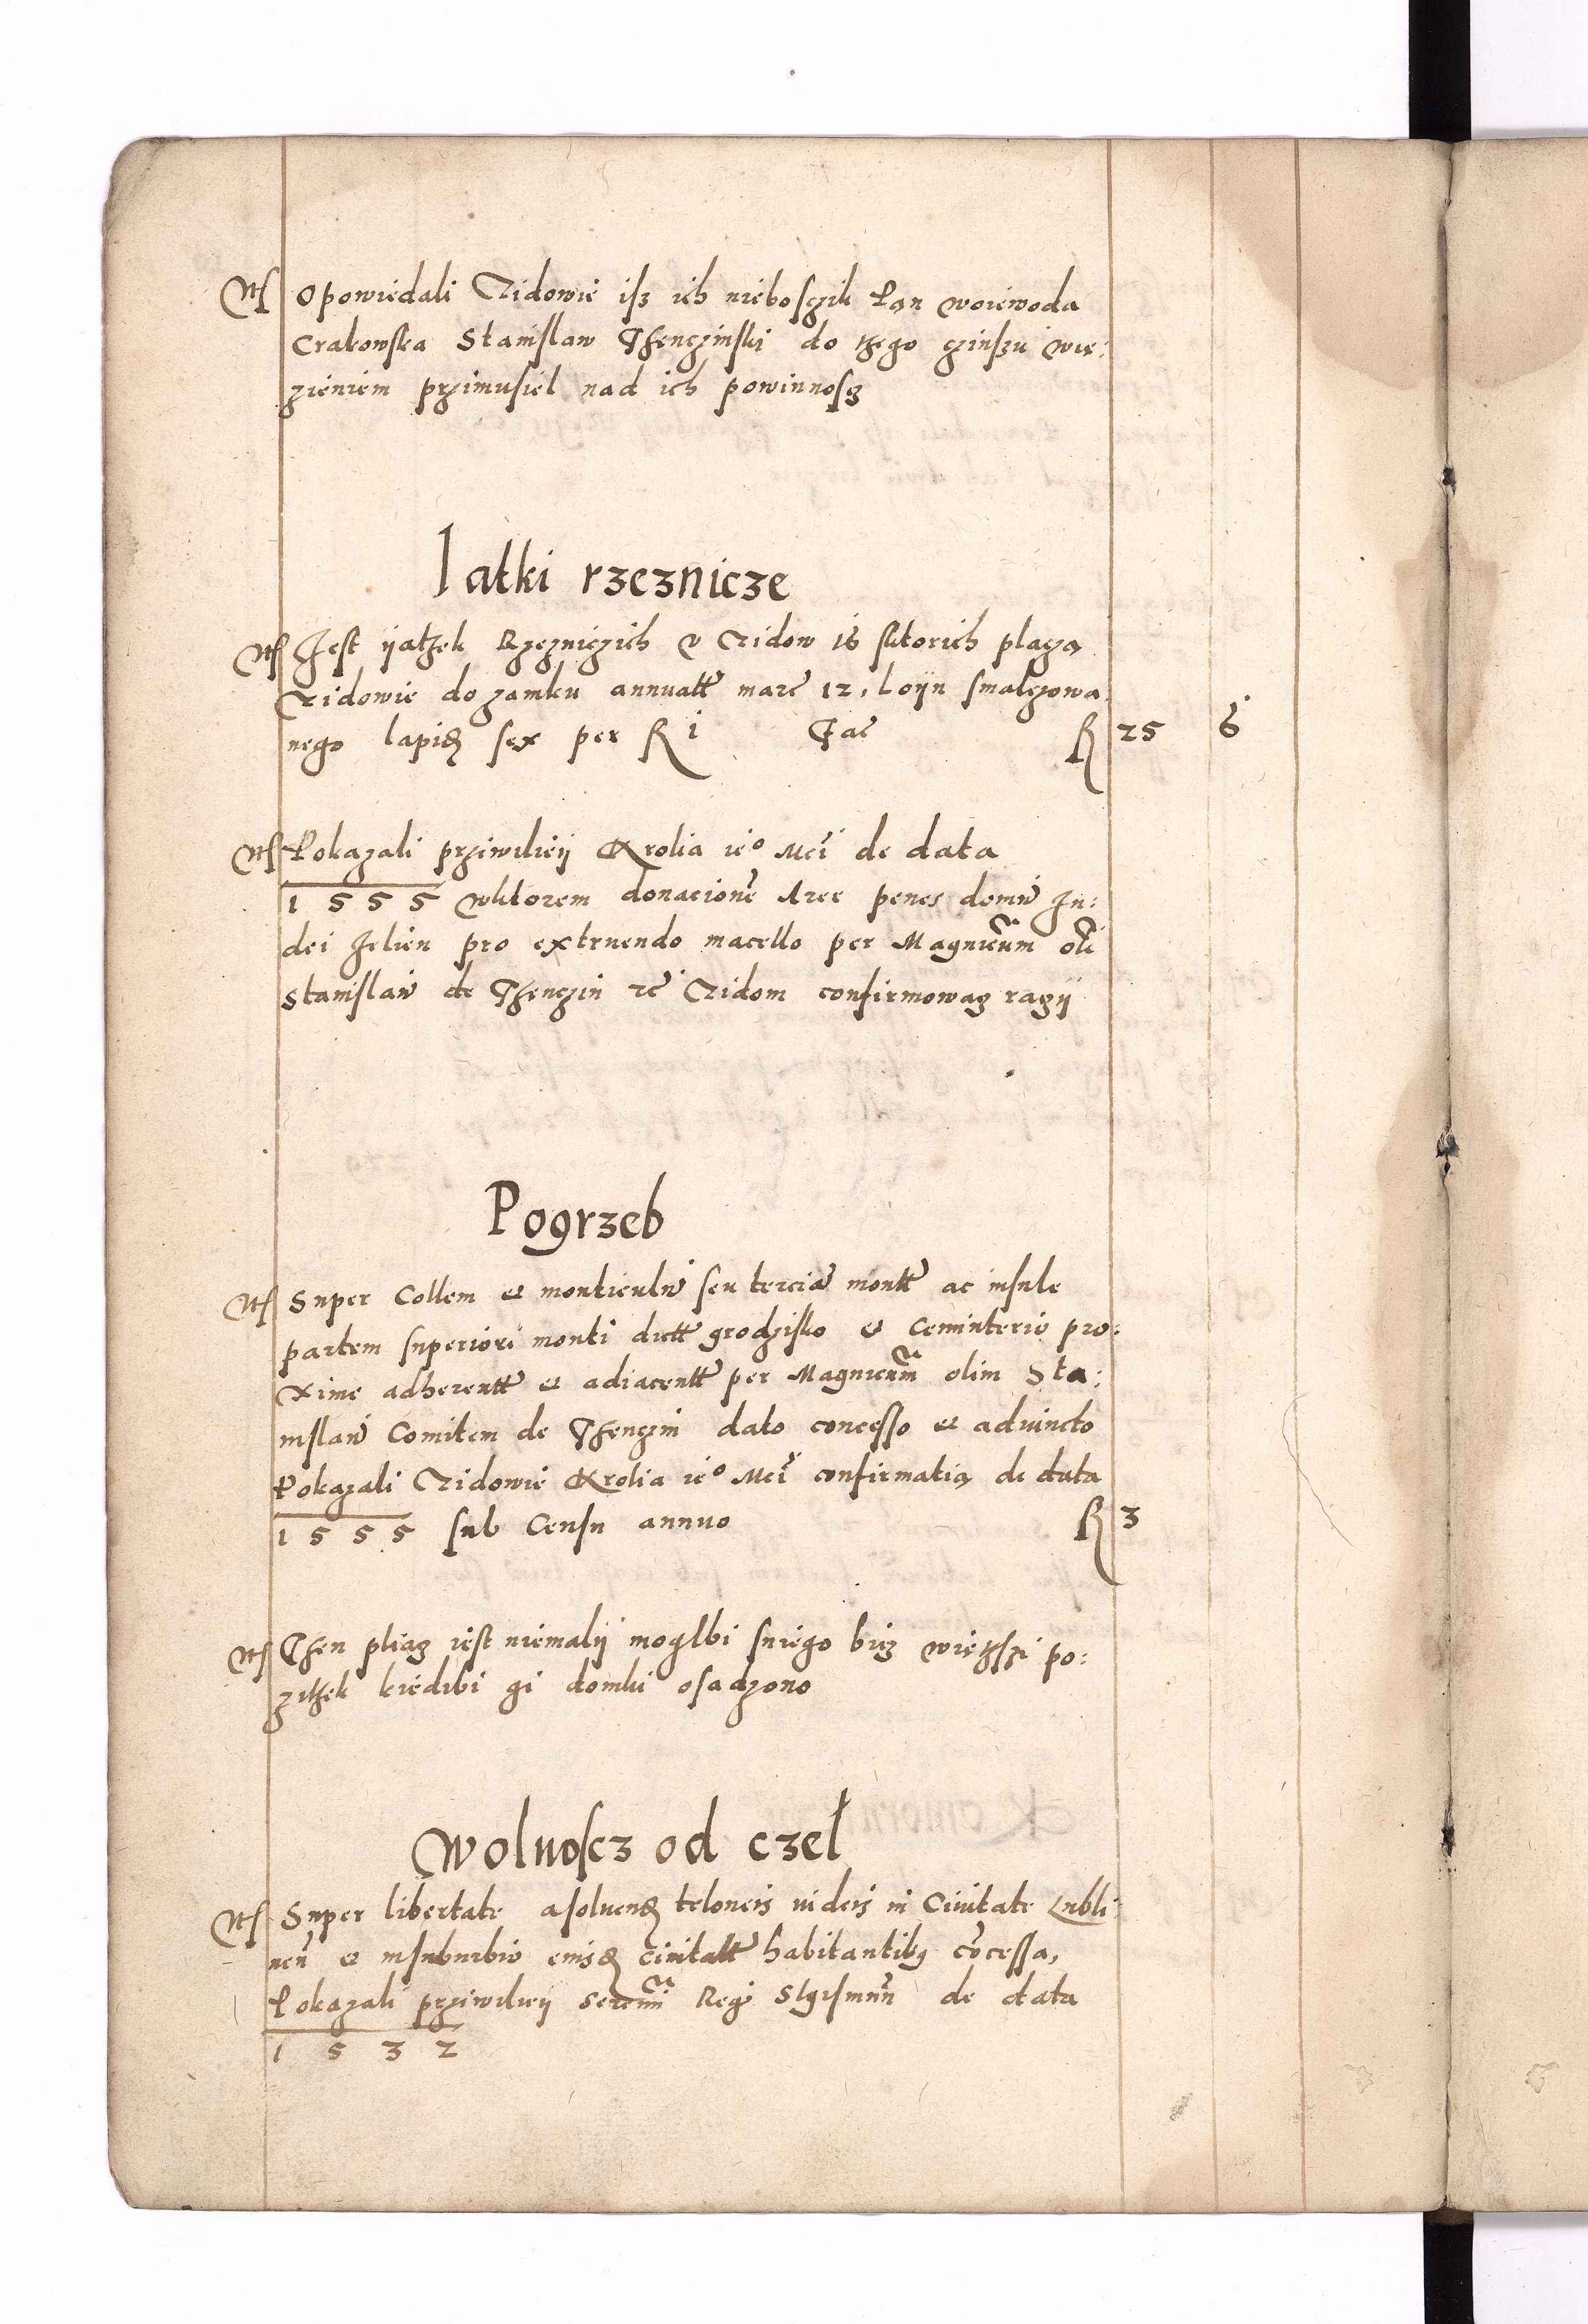 Opowiedali Zidowie isz ich nieboszik Pan woiewoda
Crakowska Stanislaw Thenczinski do thego czinszu wie:
zieniem przimusiel nad ich powinnoscz
Iatki rzeznicze
Jest yathek Rzezniczich v Zidow 16 sktorich placza
Zidowie do zamku annuatt marc 12, Loyu smalczowa
nego lapid sex per R i Fac R 25 6
Pokazali prziwiliey Krolia ieo Mci de data
1555 wktorem donacione Aree penes domu Ju:
dei Jelien pro extruendo macello per Magnicum oli
Stanislau de Thenczin rc Zidom confirmowacz raczy
Pogrzeb
Super Collem et monticulu seu tercia montt ac insule
partem superiori monti dictt grodzisko et Ceminterio pro:
xime adherentt et adiacentt per Magnicum olim Sta:
nislau Comitem de Thenczin dato concesso et adiuncto
Pokazali Zidowie Krolia ieo Mci confirmatia de data
1555 sub Censu annuo R 3
Then pliacz iest niemaly moglbi sniego bicz wiethszi po:
zithek kiedibi gi domki osadzono
Wolnoscz od czel
Super libertate asoluend teloneis iudeis in Ciuitate Lubli:
nen et insuburbio eiusd ciuitatt habitantibus concessa,
Pokazali prziwiliey Serenmi Regi Sigismun de data
1532